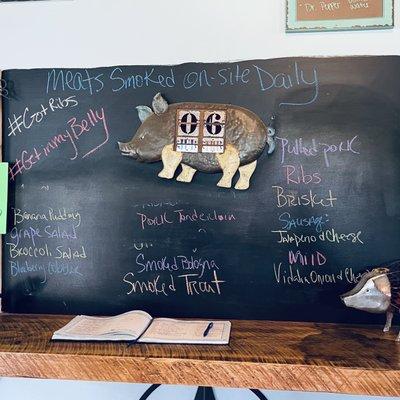 Dr. Pepper
Water
Meats Smoked on-site Daily
#Got Ribs
#Getinmy Belly
06
Banana Pudding
Grape Salad
Broccoli Salad
Blueberry
Pork Tenderloin
Smoked Bologna
Smoked Trout
Pulled pork
Ribs
Brisket
Sausage:
Jalapeno & Cheese
Mild
Vidalia Onion & Cheese